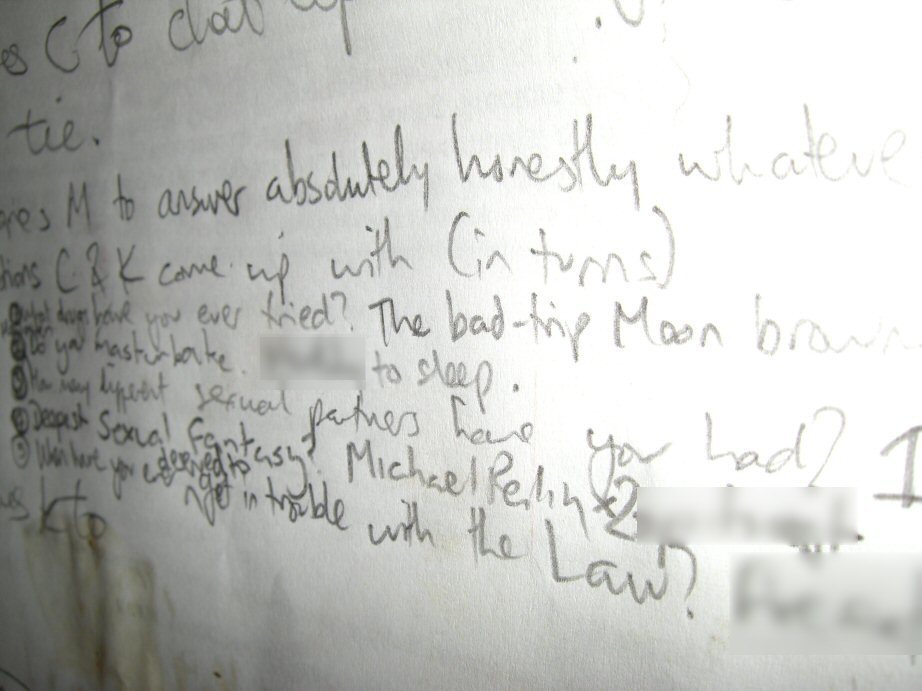 es C to chat up
tie.
ores M to answer absolutely honestly whateve
tions C & K come up with (in turns)
① What drugs have you ever tried? The bad-trip Moon brown
② Do you masturbate. to sleep.
③ How many different sexual partners have you had? 1
④ Deepest Sexual Fantasy? Michael x2
⑤ When have you deserved to get in trouble with the Law?
K to